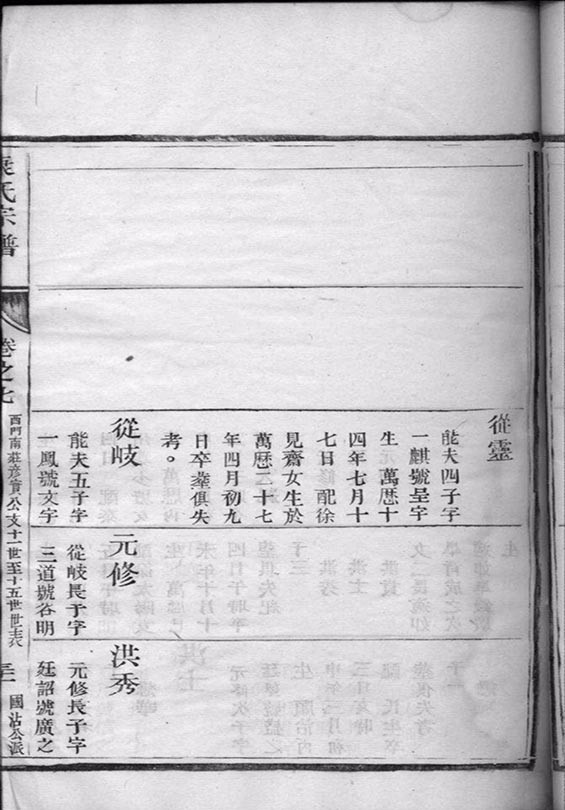 從靈
能夫四子字
一麒號呈字
生萬厯十
四年七月十
七日配徐
見齋女生於
萬厯二十七
年四月初九
日卒葬俱失
考。
從岐
能夫五子字
一鳳號文字
元修
從岐長子字
三道號谷明
洪秀
元修長子字
廷詔號廣之
氏宗譜
卷之七
西門南莊彥實公支十一世至十五世世表
國沾公派